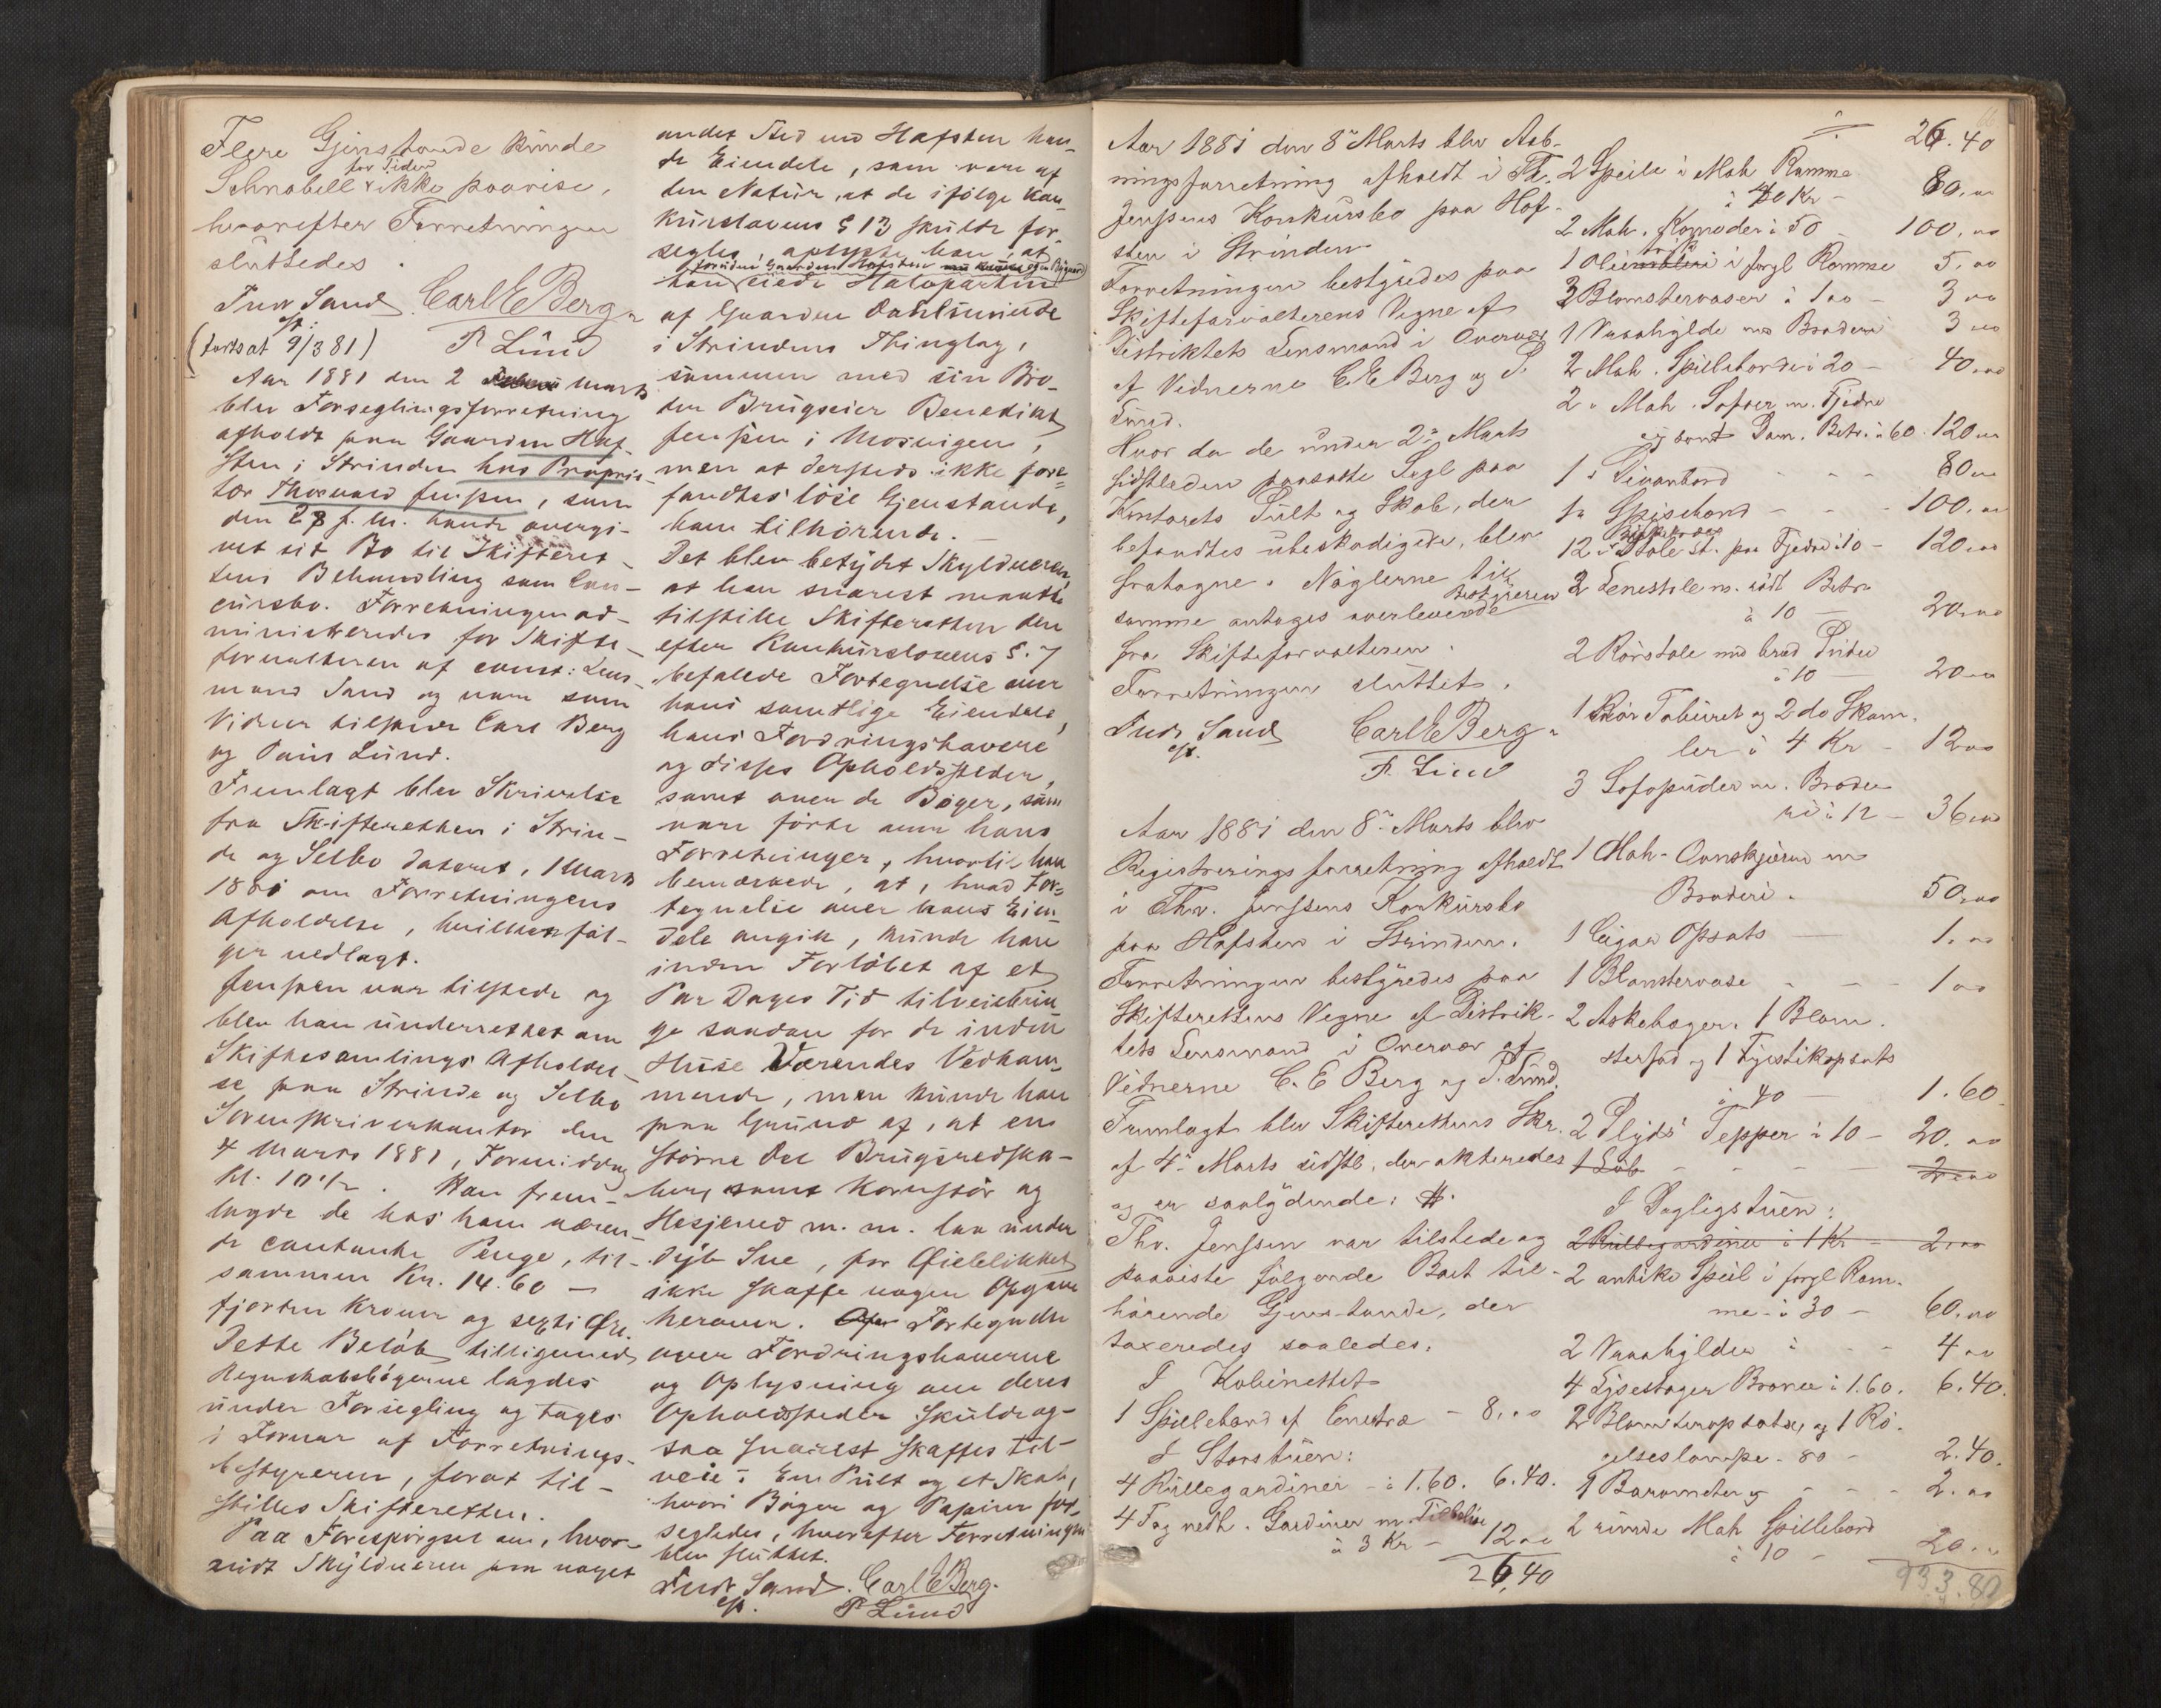 Flere Gjenstande kunde
for Tiden
Schnabell ikke paavise,
hvorefter Forretningen
sluttedes.
Sand Carl E Berg
cst: P Lund
(fortsat 9/3 81)
Aar 1881 den 2 Marts
blev Forseglingsforretning
afholdt paa Gaarden Haf-
sten i Strinden hos Proprie-
tær Thorvald Jenssen, som
den 28 f. M. havde overgi-
vet sit Bo til Skifteret-
tens Behandling som Con-
cursbo. Forretningen ad-
ministreredes for Skifte-
forvalteren af const: Lens-
mand Sand og vare som
Vidner tilstede Carl Berg
og Lund.
Fremlagt blev Skrivelse
fra Skifteretten i Strin-
de og Selbo dateret, 1 Marts
1881 om Forretningens
Afholdelse, hvilken føl-
ger vedlagt.
Jenssen var tilstede og
blev han underrettet om
Skiftesamlings Afholdel-
se paa Strinde og Selbo
Sorenskriverkontor den
4 Marts 1881, Formiddag
Kl. 10 1/2. Han frem-
lagde de hos ham væren-
de contante Penge, til-
sammen Kr. 14.60 —
fjorten Kroner og sexti Øre.
Dette Beløb tilligemed
Regnskabsbøgerne lagdes
under Forsegling og toges
i Forvar af Forretnings-
bestyreren, forat til-
stilles Skifteretten.
Paa Forespørgsel om, hvor-
vidt Skyldneren paa noget
andet Sted end Hafsten hav-
de Eiendele, som vare af
den Natur, at de ifølge Kon-
kurslovens § 13 skulde for-
segles, oplyste han, at
foruden Gaarden Hafsten
han eiede Halvparten
af Gaarden
i Strindens Thinglag,
sammen med sin Bro-
der Brugseier Benedikt
Jenssen i Mosvigen,
men at dersteds ikke fore-
fandtes løse Gjenstande,
ham tilhørende.
Det blev betydet Skyldneren,
at han snarest maatte
tilstille Skifteretten den
efter Konkurslovens § 7
befalede Fortegnelse over
hans samtlige Eiendele,
hans Fordringshavere
og disses Opholdssteder,
samt over de Bøger, som
vare førte over hans
Forretninger, hvortil han
bemærkede, at, hvad For-
tegnelse over hans Eien-
dele angik, kunde han
inden Forløbet af et
Par Dages Tid tilveiebrin-
ge saadan for de inden
Huse Værendes Vedkom-
mende, men kunde han
paa Grund af, at en
større Del Brugsredska-
ber, samt Kornstør og
Hesjeved m. m. laa under
dyb Sne, for Øieblikket
ikke skaffe nogen Opgave
herover. Fortegnelse
over Fordringshaverne
og Oplysning om deres
Opholdssteder skulde og-
saa snarest skaffes til-
veie. En Pult og et Skab,
hvori Bøger og Papirer for-
segledes, hvorefter Forretningen
blev sluttet.
Sand. Carl E Berg.
cst. P Lund
Aar 1881 den 8de Marts blev Aab-
ningsforretning afholdt i Th.
Jenssens Konkursbo paa Hof-
sten i Strinden
Forretningen bestyredes paa
Skifteforvalterens Vegne af
Distriktets Lensmand i Overvær
af Vidnerne C E Berg og P.
Lund.
Hvor da de under 2de Marts
sidstleden paasatte Segl paa
Kontorets Pult og Skab, der
befandtes ubeskadigede, blev
fratagne. Nøglerne til
Bestyreren
samme antoges overleverede
fra Skifteforvalteren.
Forretningen sluttet.
Sand Carl E Berg
cst. P. Lund
Aar 1881 den 8de Marts blev
Registreringsforretning afholdt
i Thv. Jenssens Konkursbo
paa Hofsten i Strinden.
Forretningen bestyredes paa
Skifterettens Vegne af Distrik-
tets Lensmand i Overvær af
Vidnerne C. E Berg og P. Lund.
Fremlagt blev Skifterettens Skr.
af 4de Marts sidstl. der akteredes
og er saalydende: #.
Thv. Jenssen var tilstede og
paaviste følgende Boet til-
hørende Gjenstande, der
taxeredes saaledes.
I Kabinettet
1 Spillebord af Enetræ - 8.00
I Storstuen:
4 Rullegardiner - à 1.60. 6.40.
4 Fag neth. Gardiner m. Tilbehør
à 3 Kr - 12.00
26,40
26.40
2 Speile i Mah Ramme
à 40 Kr - 80.00
2 Mah. Komoder à 50 - 100.00
1 i forgl Ramme 5.00
3 Blomstervaser à 1.00 - 3.00
1 Vaahylde med Broderi 3.00
2 Mah. Spilleborde à 20 - 40.00
2 " Mah. Sofaer m. Fjedre
og sort Dam. Betr. à 60. 120.00
1 " Divanbord - - - 80.00
1 " Spisebord - - - 100.00
12 " Stole st. paa Fjedre à 10 - 120.00
2 Lenestole m. rødt Betr.
à 10 - 20.00
2 Rørstole med brod Puder
à 10 - 20.00
1 Rør Taburet og 2 do Skam-
ler à 4 Kr - 12.00
3 Sofapuder m. Brode-
ri à 12 - 36.00
1 Mah. Ovnskjærm m
Broderi. 50.00
1 Cigar Opsats - 1.00
1 Blomstervase - - - 1.00
2 Askebæger, 1 Blom-
sterfad og 1 Fyrstikopsats
à 40 - 1.60
2 Plyds Tepper à 10 - 20.00
1 Løb - - - - 2.00
I Dagligstuen:
2 Rullegardiner à 1 Kr - 2.00
2 antike Speil i forgl Ram-
me à 30 - 60.00
2 Vaahylder à - - 4.00
4 Lysestager Bronce à 1.60. 6.40.
2 Blomsteropsatse, og 1 Rø-
gelseslampe. 80 - 2.40.
1 Barometer - - - 2.00
2 runde Mah Spillebord
à 10 - 20.00
933.80